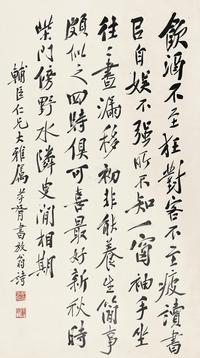 飲酒不至狂對客不至疲讀書
㠯自娛不强所不知一窗袖手坐
往〻晝漏移初非能養生簡事
頗似之四時俱可喜最好新秋時
柴門傍野水隣叟閒相期
輔臣仁兄大雅屬 孝胥書放翁詩